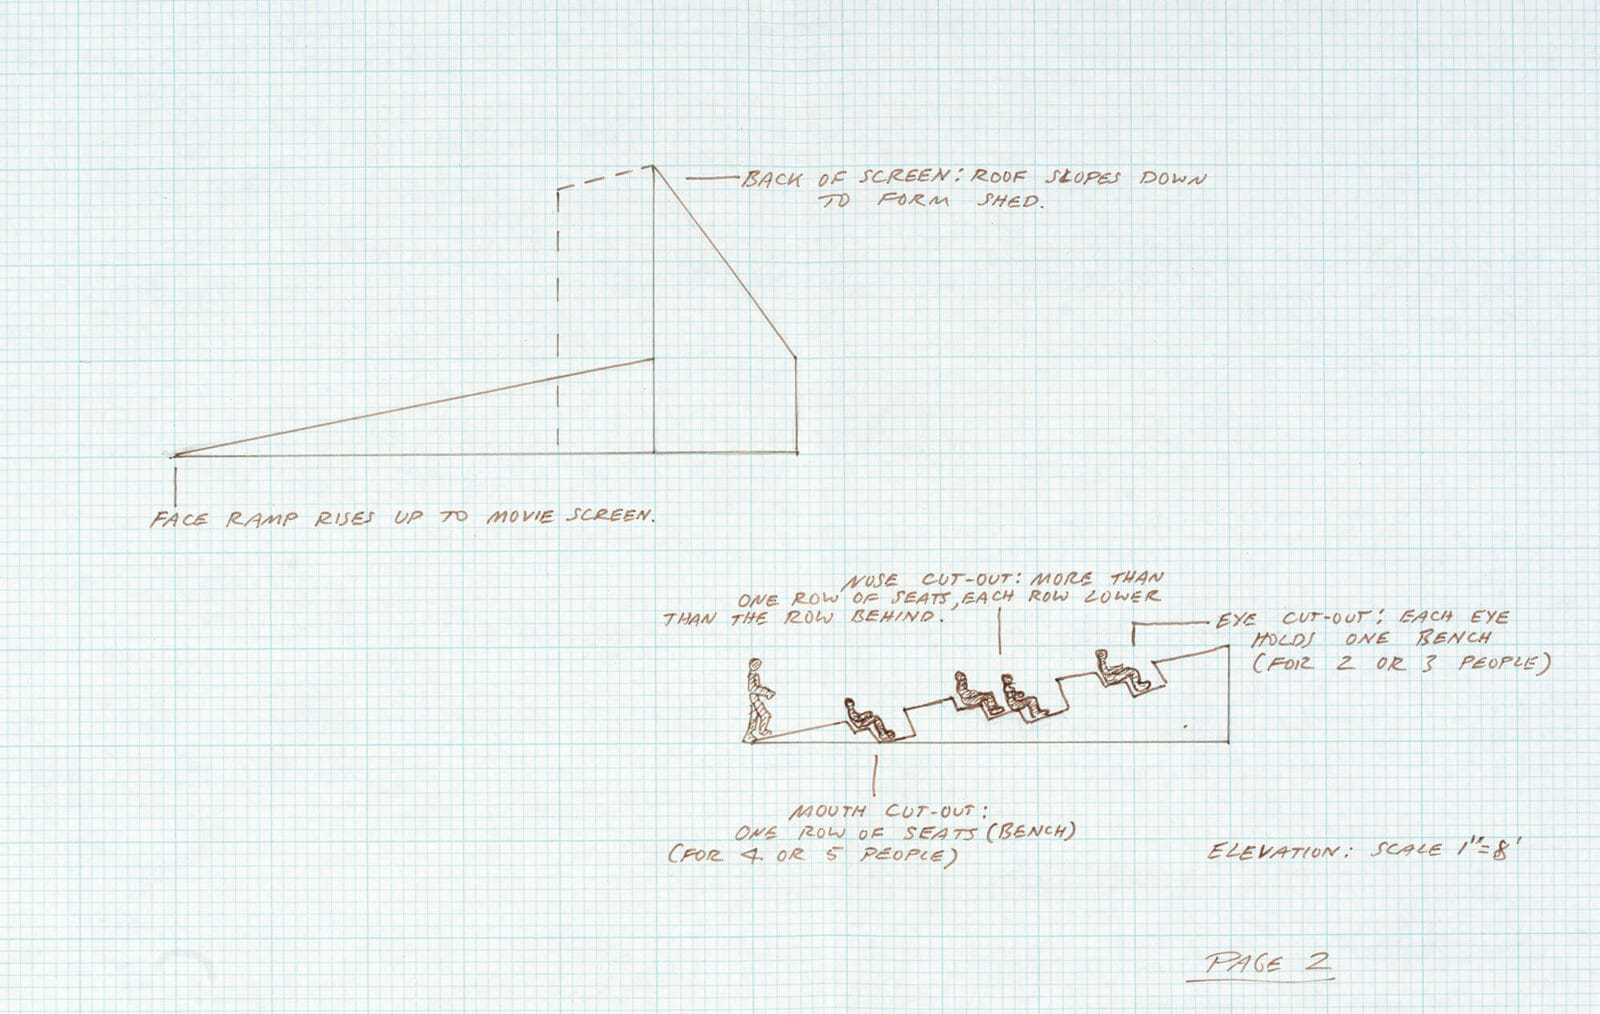 BACK OF SCREEN: ROOF SLOPES DOWN
TO FORM SHED.
FACE RAMP RISES UP TO MOVIE SCREEN.
NOSE CUT-OUT: MORE THAN
ONE ROW OF SEATS, EACH ROW LOWER
THAN THE ROW BEHIND.
EYE CUT-OUT: EACH EYE
HOLDS ONE BENCH
(FOR 2 OR 3 PEOPLE)
MOUTH CUT-OUT:
ONE ROW OF SEATS (BENCH)
(FOR 4 OR 5 PEOPLE)
ELEVATION: SCALE 1"=8'
PAGE 2